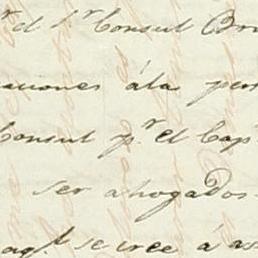 r el Sr Consul Br
aciones á la per
Consul pr. el Cap
ser ahogados
aql. se cree á as